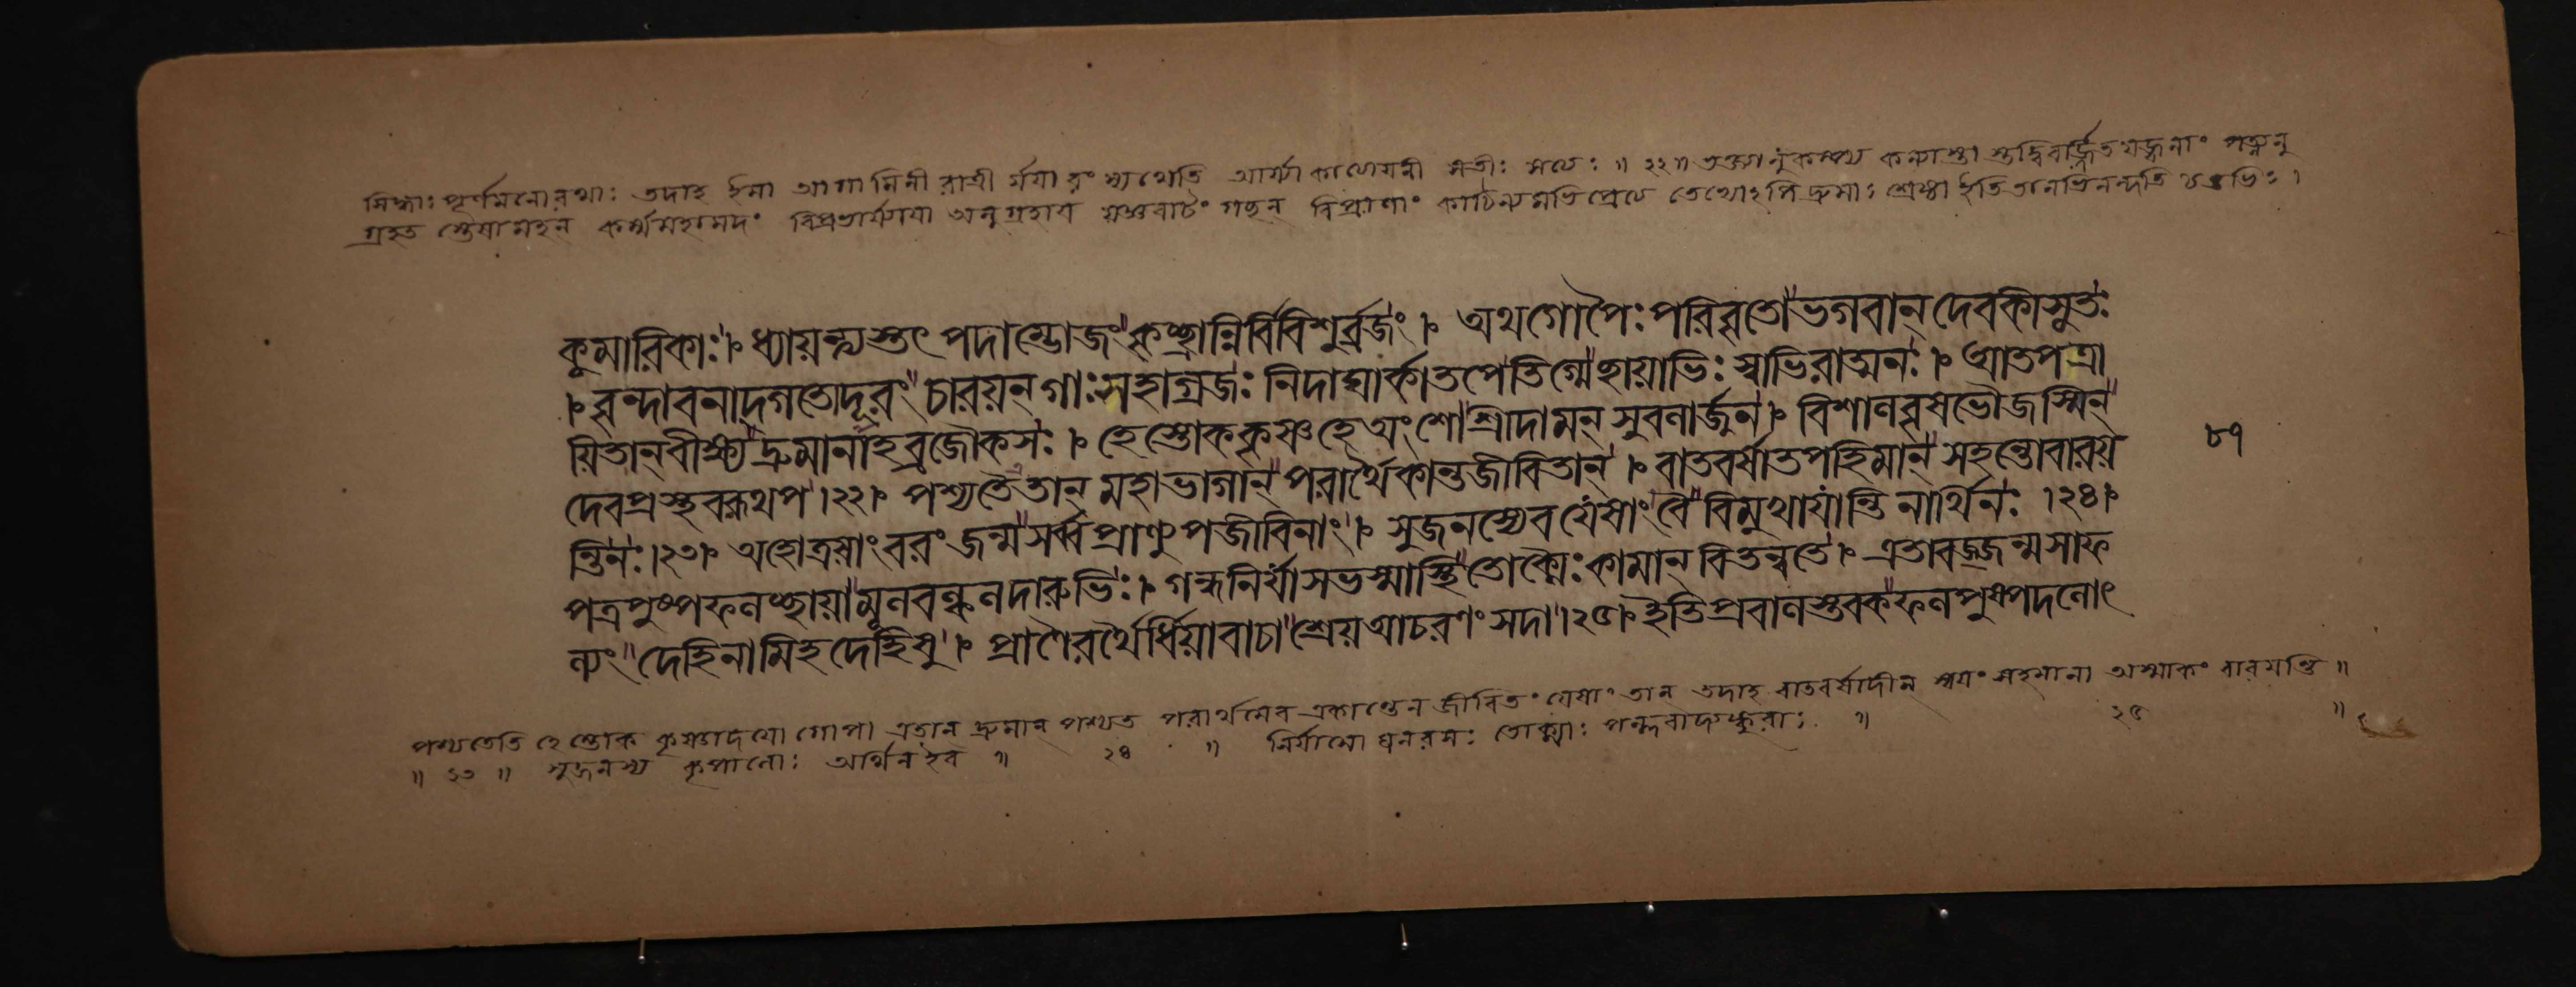 সিদ্ধাঃ পূর্ণমনোরথাঃ তদাহ ইমা আগামিনী রাত্রী র্ময়া রংস্যথেতি আর্য্যা কাত্যায়নী সতীঃ সত্যঃ ॥ ২২ ॥
গ্রহ বিপ্রভার্য্যা অনুগ্রহায় গচ্ছন্ বিপ্রাণাং কাঠিন্যমভিপ্রেত্য দ্রুমাঃ শ্রেষ্ঠা ইতি তানভিনন্দতি চতুর্ভিঃ ।
কুমারিকাঃ । ধ্যায়ন্ত্যস্তৎ পদাম্ভোজং কৃচ্ছ্রান্নির্বিবিশুর্ব্রজং । অথ গোপৈঃ পরিবৃতো ভগবান্ দেবকীসুতঃ
। বৃন্দাবনাদ্গতো দূরং চারয়ন্ গাঃ সহাগ্রজঃ নিদাঘার্কাতপে তিগ্মে ছায়াভিঃ স্বাভিরাত্মনঃ । আতপত্রা
য়িতান্ বীক্ষ্য দ্রুমানাহ ব্রজৌকসঃ । হে স্তোককৃষ্ণ হে অংশো শ্রীদামন্ সুবলার্জুন । বিশালবৃষভৌজস্মিন্
দেবপ্রস্থ বরূথপ । ২২ । পশ্যতৈতান্ মহাভাগান্ পরার্থৈকান্তজীবিতান্ । বাতবর্ষাতপহিমান্ সহন্তো বারয়
ন্তি নঃ । ২৩ । অহো ত্রষাং বরং জন্ম সর্ব্বপ্রাণ্যুপজীবিনাং । সুজনস্যেব যেষাং বৈ বিমুখা যান্তি নার্থিনঃ । ২৪ ।
পত্রপুষ্পফলচ্ছায়ামূলবল্কলদারুভিঃ । গন্ধনির্যাসভস্মাস্থিতোক্মৈঃ কামান্ বিতন্বতে । এতাবজ্জন্মসাফ
ল্যং দেহিনামিহ দেহিষু । প্রাণৈরর্থৈর্ধিয়া বাচা শ্রেয় আচরণং সদা । ২৫ । ইতি প্রবালস্তবকফলপুষ্পদলোৎ
৮৭
পশ্যতেতি হে স্তোক কৃষ্ণাদয়ো গোপা এতান্ দ্রুমান্ পশ্যত পরার্থমেব একান্তেন জীবিতং যেষাং তান্ তদাহ বাতবর্ষাদীন্ স্বয়ং সহমানা অস্মাকং বারয়ন্তি ॥
॥ ২৩ ॥ সুজনস্য কৃপালোঃ অর্থিন ইব ॥ ২৪ ॥ নির্যাসো ঘনরসঃ তোক্মাঃ পল্লবাদ্যঙ্কুরাঃ ॥ ২৫ ॥